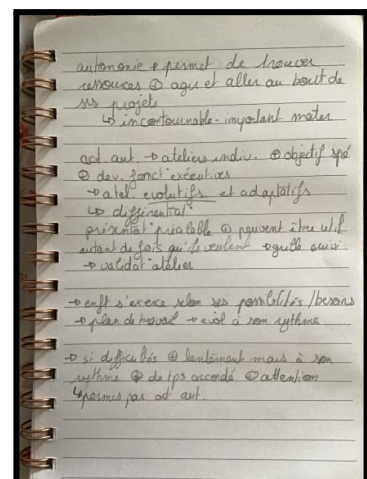 autonomie + permet de trouver
ressources ⊕ agir et aller au bout de
ses projets
↳ incontournable - important mater
act aut. → ateliers indiv. ⊕ objectif spé
⊕ dev. fonct° exécutives
→ atel. evolutifs et adaptatifs
↳ différenciat°
présentat° préalable ⊕ peuvent être util
autant de fois qu'ils veulent → grille suivi
→ validat° atelier
→ enft s'exerce selon ses possibilités / besoins
→ plan de travail → evol à son rythme
→ si difficultés ⊕ lentement mais à son
rythme ⊕ de tps accordé ⊕ attention
↳ permis par act aut.